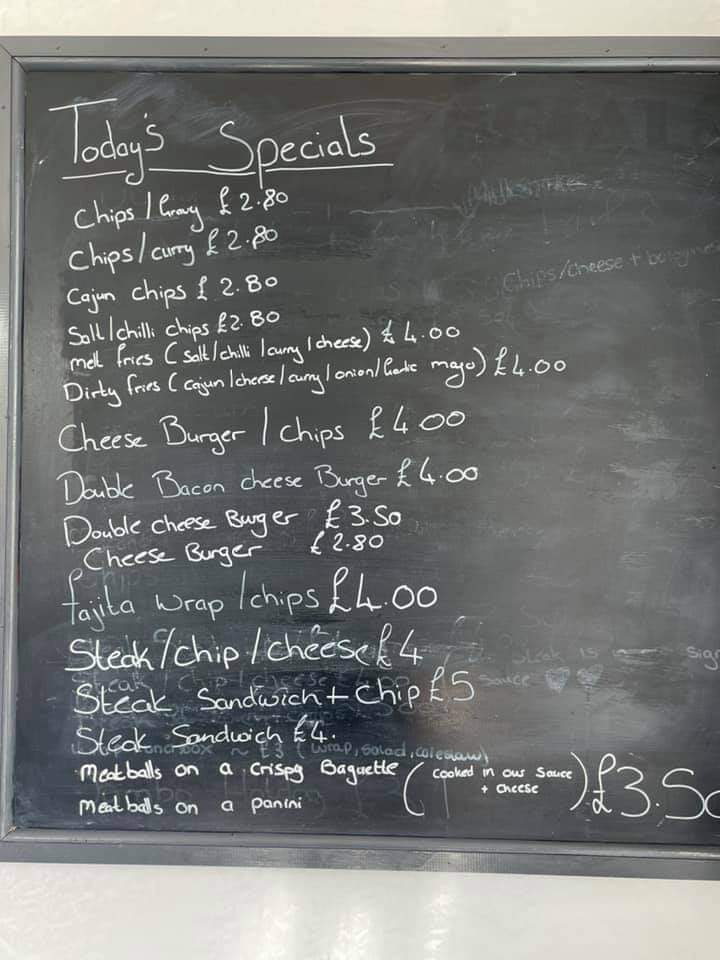 Today's Specials
Chips/Gravy £2.80
Chips/curry £2.80
Cajun chips £2.80
Salt/chilli chips £2.80
melt fries (salt/chilli/curry/cheese) £4.00
Dirty fries (cajun/cheese/curry/onion/Garlic mayo) £4.00
Cheese Burger/chips £4.00
Double Bacon cheese Burger £4.00
Double cheese Burger £3.50
Cheese Burger £2.80
fajita wrap/chips £4.00
Steak/chip/cheese £4
Steak Sandwich + chip £5
Steak Sandwich £4.
Meatballs on a Crispy Baguette (cooked in our sauce + cheese) £3.50
Meatballs on a panini
Chips/cheese +
Steak is
sauce
(wrap, salad, coleslaw)